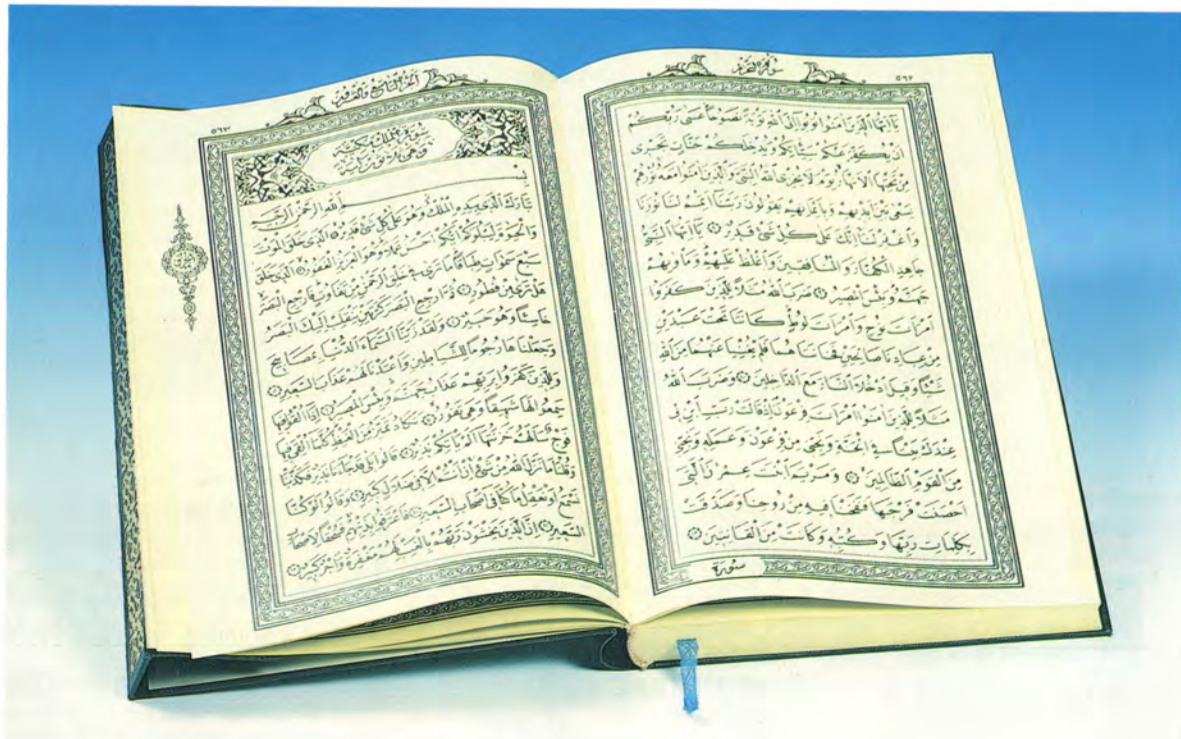 سورة التحريم
٥٦٢
يَا اَيُّهَا الَّذِينَ اٰمَنُوا تُوبُوا اِلَى اللّٰهِ تَوْبَةً نَصُوحًا عَسٰى رَبُّكُمْ
اَنْ يُكَفِّرَ عَنْكُمْ سَيِّئَاتِكُمْ وَيُدْخِلَكُمْ جَنَّاتٍ تَجْرِى
مِنْ تَحْتِهَا الْاَنْهَارُ يَوْمَ لَا يُخْزِى اللّٰهُ النَّبِىَّ وَالَّذِينَ اٰمَنُوا مَعَهُ نُورُهُمْ
يَسْعٰى بَيْنَ اَيْدِيهِمْ وَبِاَيْمَانِهِمْ يَقُولُونَ رَبَّنَا اَتْمِمْ لَنَا نُورَنَا
وَاغْفِرْ لَنَا اِنَّكَ عَلٰى كُلِّ شَىْءٍ قَدِيرٌ يَا اَيُّهَا النَّبِىُّ
جَاهِدِ الْكُفَّارَ وَالْمُنَافِقِينَ وَاغْلُظْ عَلَيْهِمْ وَمَاْوٰيهُمْ
جَهَنَّمُ وَبِئْسَ الْمَصِيرُ ضَرَبَ اللّٰهُ مَثَلًا لِلَّذِينَ كَفَرُوا
امْرَاَتَ نُوحٍ وَامْرَاَتَ لُوطٍ كَانَتَا تَحْتَ عَبْدَيْنِ
مِنْ عِبَادِنَا صَالِحَيْنِ فَخَانَتَاهُمَا فَلَمْ يُغْنِيَا عَنْهُمَا مِنَ اللّٰهِ
شَيْئًا وَقِيلَ ادْخُلَا النَّارَ مَعَ الدَّاخِلِينَ وَضَرَبَ اللّٰهُ
مَثَلًا لِلَّذِينَ اٰمَنُوا امْرَاَتَ فِرْعَوْنَ اِذْ قَالَتْ رَبِّ ابْنِ لِى
عِنْدَكَ بَيْتًا فِى الْجَنَّةِ وَنَجِّنِى مِنْ فِرْعَوْنَ وَعَمَلِهِ وَنَجِّنِى
مِنَ الْقَوْمِ الظَّالِمِينَ وَمَرْيَمَ ابْنَتَ عِمْرٰنَ الَّتِى
اَحْصَنَتْ فَرْجَهَا فَنَفَخْنَا فِيهِ مِنْ رُوحِنَا وَصَدَّقَتْ
بِكَلِمَاتِ رَبِّهَا وَكُتُبِهِ وَكَانَتْ مِنَ الْقَانِتِينَ
سورة
الجزء التاسع والعشرون
٥٦٣
سورة الملك مكية
وهى ثلاثون اية
بِسْمِ اللّٰهِ الرَّحْمٰنِ الرَّحِيمِ
تَبَارَكَ الَّذِى بِيَدِهِ الْمُلْكُ وَهُوَ عَلٰى كُلِّ شَىْءٍ قَدِيرٌ اَلَّذِى خَلَقَ الْمَوْتَ
وَالْحَيٰوةَ لِيَبْلُوَكُمْ اَيُّكُمْ اَحْسَنُ عَمَلًا وَهُوَ الْعَزِيزُ الْغَفُورُ اَلَّذِى خَلَقَ
سَبْعَ سَمٰوَاتٍ طِبَاقًا مَا تَرٰى فِى خَلْقِ الرَّحْمٰنِ مِنْ تَفَاوُتٍ فَارْجِعِ الْبَصَرَ
هَلْ تَرٰى مِنْ فُطُورٍ ثُمَّ ارْجِعِ الْبَصَرَ كَرَّتَيْنِ يَنْقَلِبْ اِلَيْكَ الْبَصَرُ
خَاسِئًا وَهُوَ حَسِيرٌ وَلَقَدْ زَيَّنَّا السَّمَاءَ الدُّنْيَا بِمَصَابِيحَ
وَجَعَلْنَاهَا رُجُومًا لِلشَّيَاطِينِ وَاَعْتَدْنَا لَهُمْ عَذَابَ السَّعِيرِ
وَلِلَّذِينَ كَفَرُوا بِرَبِّهِمْ عَذَابُ جَهَنَّمَ وَبِئْسَ الْمَصِيرُ اِذَا اُلْقُوا فِيهَا
سَمِعُوا لَهَا شَهِيقًا وَهِىَ تَفُورُ تَكَادُ تَمَيَّزُ مِنَ الْغَيْظِ كُلَّمَا اُلْقِىَ فِيهَا
فَوْجٌ سَاَلَهُمْ خَزَنَتُهَا اَلَمْ يَاْتِكُمْ نَذِيرٌ قَالُوا بَلٰى قَدْ جَاءَنَا نَذِيرٌ فَكَذَّبْنَا
وَقُلْنَا مَا نَزَّلَ اللّٰهُ مِنْ شَىْءٍ اِنْ اَنْتُمْ اِلَّا فِى ضَلَالٍ كَبِيرٍ وَقَالُوا لَوْ كُنَّا
نَسْمَعُ اَوْ نَعْقِلُ مَا كُنَّا فِى اَصْحَابِ السَّعِيرِ فَاعْتَرَفُوا بِذَنْبِهِمْ فَسُحْقًا لِاَصْحَابِ
السَّعِيرِ اِنَّ الَّذِينَ يَخْشَوْنَ رَبَّهُمْ بِالْغَيْبِ لَهُمْ مَغْفِرَةٌ وَاَجْرٌ كَبِيرٌ